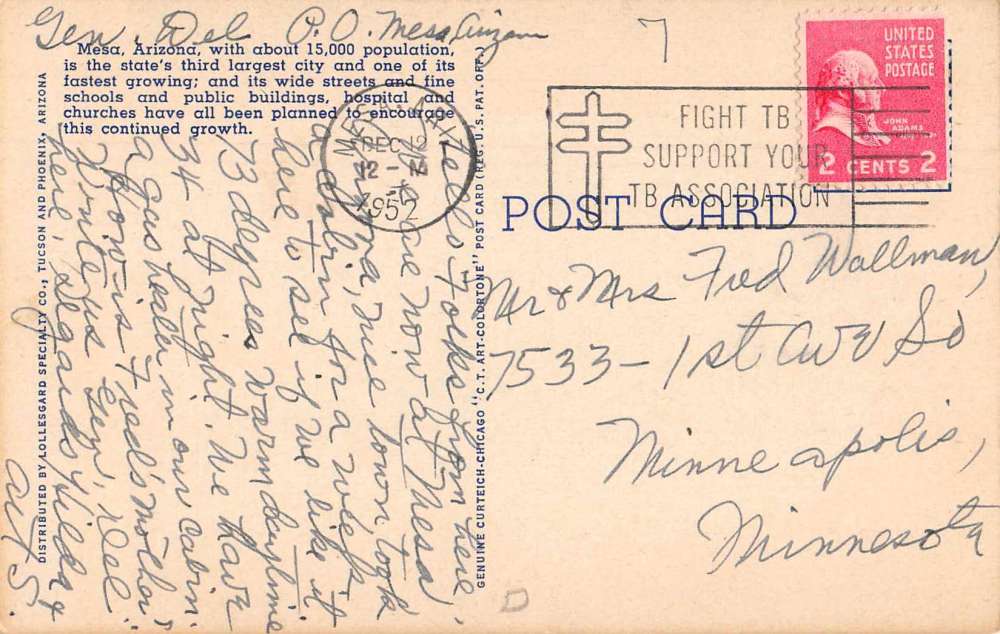 Gen. Del P.O. Mesa, Arizona
Mesa, Arizona, with about 15,000 population,
is the state's third largest city and one of its
fastest growing; and its wide streets and fine
schools and public buildings, hospital and
churches have all been planned to encourage
this continued growth.
DISTRIBUTED BY LOLLESGARD SPECIALTY CO., TUCSON AND PHOENIX, ARIZONA
GENUINE CURTEICH-CHICAGO "C.T. ART-COLORTONE" POST CARD (REG. U.S. PAT. OFF.)
Hello Folks from here,
we are now at Mesa
Arizona, nice town, took
a cabin for a week
here to see if we like it
73 degrees warm daytime
34 at night. We have
a gas heater in our cabin.
How is Fred's mother?
Write us Gen. Del
here. Regards, Hilda &
Art S.
MESA, ARIZ.
DEC 12
12 - M
1952
FIGHT TB
SUPPORT YOUR
TB ASSOCIATION
UNITED
STATES
POSTAGE
JOHN
ADAMS
2 CENTS 2
7
POST CARD
Mr & Mrs Fred Wallman,
7533 - 1st Ave So
Minneapolis,
Minnesota
D